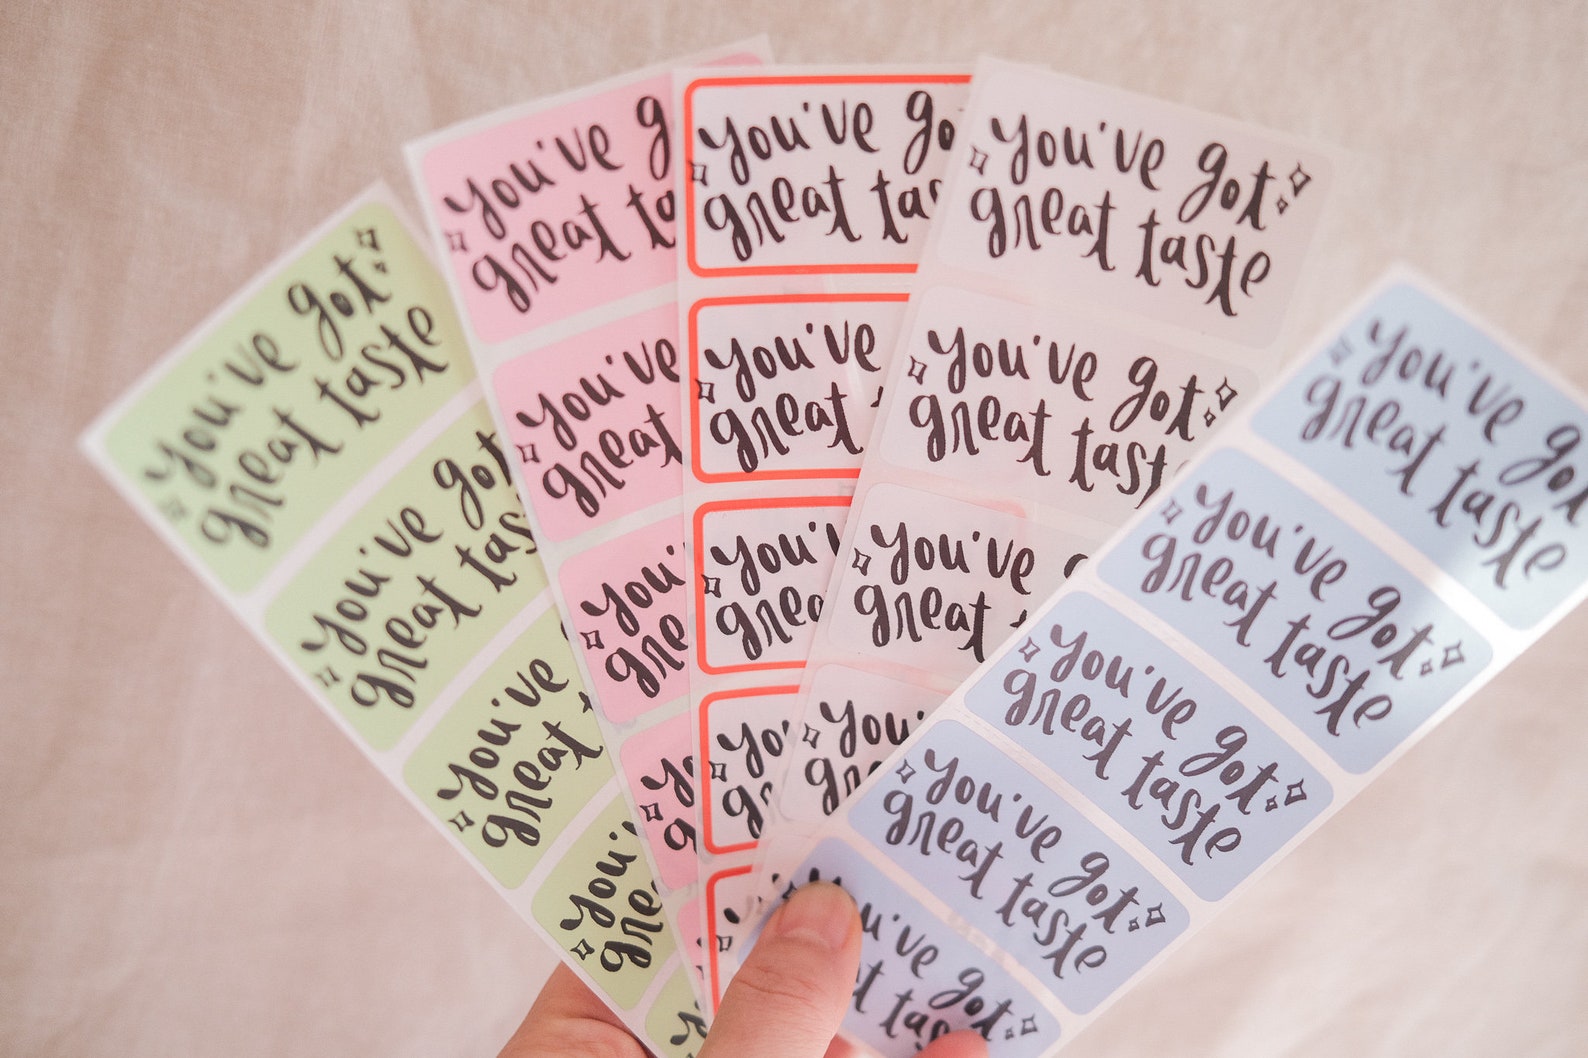 You've got
great taste
You've got
great tas
You've
great
You'
gre
You've g
great ta
You've
great
You'
gre
Yo
g
You've go
great tas
You've
great
You'v
grea
You
gre
You've got
great taste
You've got
great tast
You've
great
You'
gre
You've got
great taste
You've got
great taste
You've got
great taste
You've got
great taste
u've got
at tas